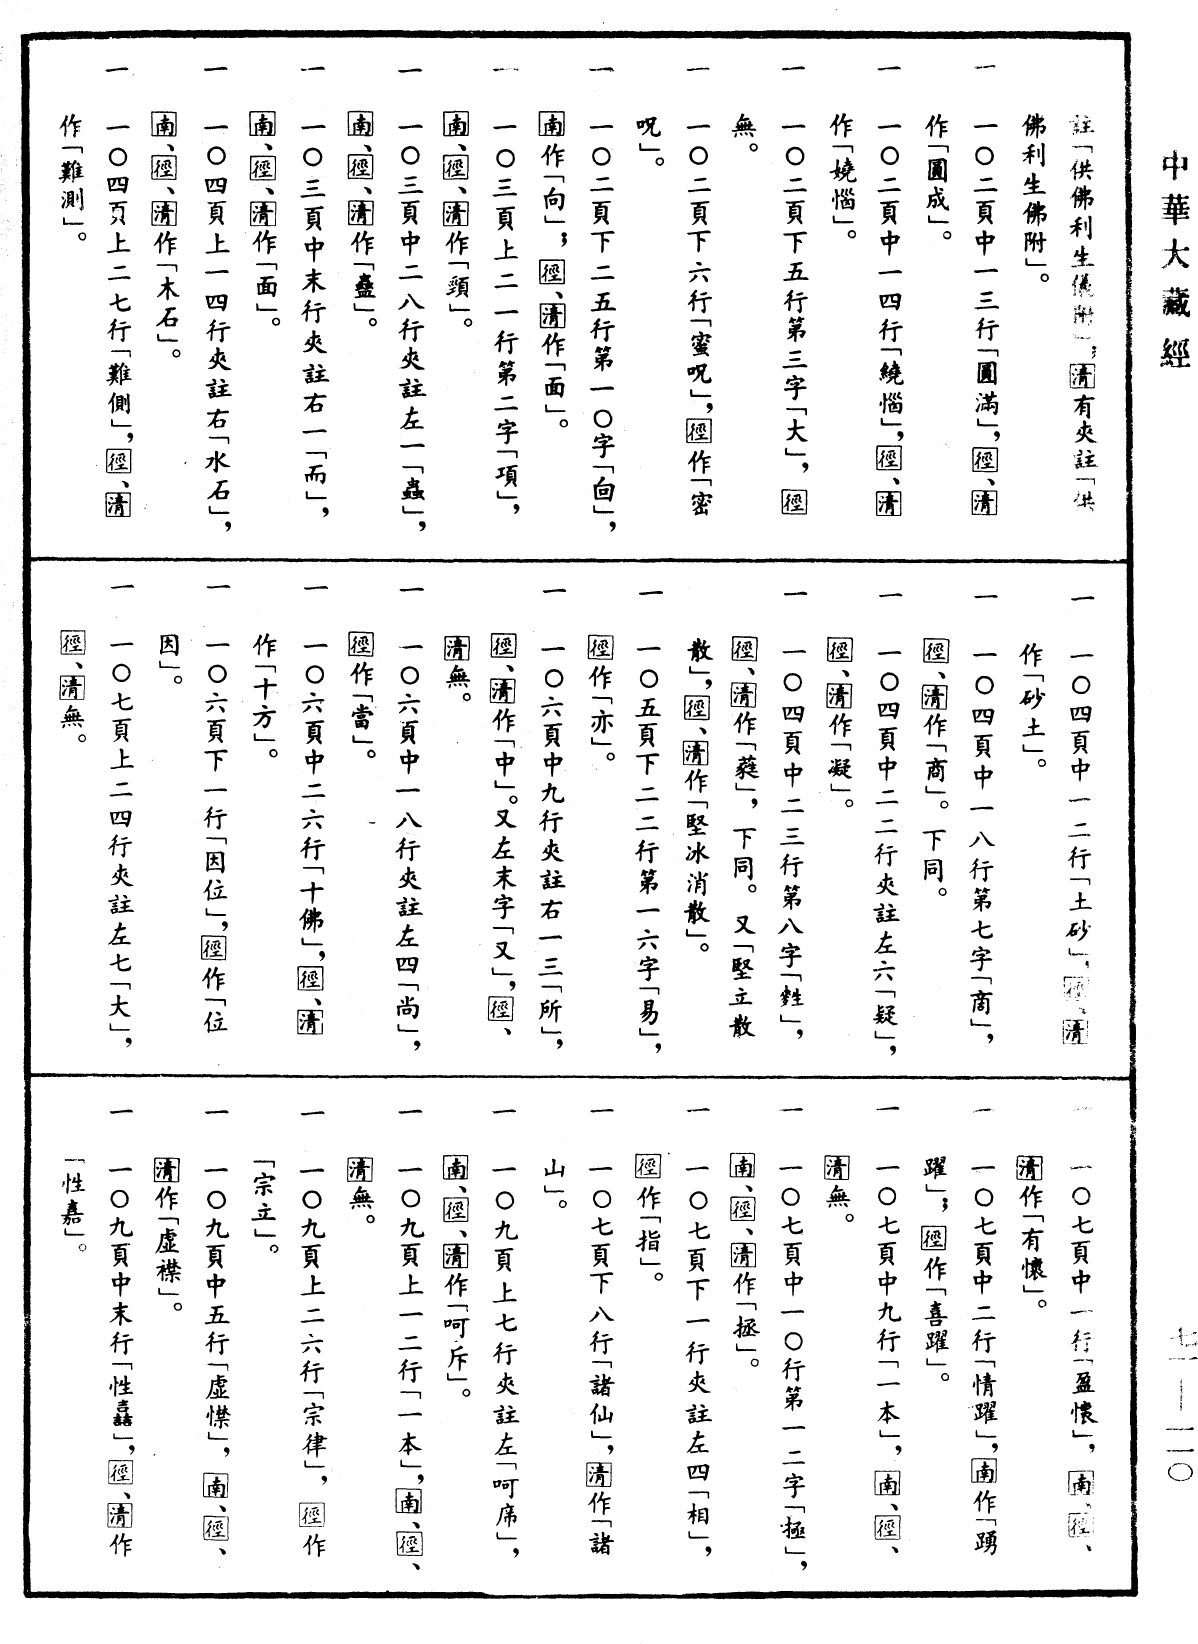 中華大藏經
註「供佛利生儀附」；清有夾註「供
佛利生佛附」。
一 一〇二頁中一三行「圓滿」，徑、清
作「圓成」。
一 一〇二頁中一四行「繞惱」，徑、清
作「嬈惱」。
一 一〇二頁下五行第三字「大」，徑
無。
一 一〇二頁下六行「蜜呪」，徑作「密
呪」。
一 一〇二頁下二五行第一〇字「向」，
南作「向」；徑、清作「面」。
一 一〇三頁上二一行第二字「項」，
南、徑、清作「頸」。
一 一〇三頁中二八行夾註左一「蟲」，
南、徑、清作「蠱」。
一 一〇三頁中末行夾註右一「而」，
南、徑、清作「面」。
一 一〇四頁上一四行夾註右「水石」，
南、徑、清作「木石」。
一 一〇四頁上二七行「難側」，徑、清
作「難測」。
一 一〇四頁中一二行「土砂」，徑、清
作「砂土」。
一 一〇四頁中一八行第七字「商」，
徑、清作「商」。下同。
一 一〇四頁中二二行夾註左六「疑」，
徑、清作「凝」。
一 一〇四頁中二三行第八字「甤」，
徑、清作「蕤」，下同。又「堅立散
散」，徑、清作「堅冰消散」。
一 一〇五頁下二二行第一六字「易」，
徑作「亦」。
一 一〇六頁中九行夾註右一三「所」，
徑、清作「中」。又左末字「又」，徑、
清無。
一 一〇六頁中一八行夾註左四「尚」，
徑作「當」。
一 一〇六頁中二六行「十佛」，徑、清
作「十方」。
一 一〇六頁下一行「因位」，徑作「位
因」。
一 一〇七頁上二四行夾註左七「大」，
徑、清無。
一 一〇七頁中一行「盈懷」，南、徑、
清作「有懷」。
一 一〇七頁中二行「情躍」，南作「踴
躍」；徑作「喜躍」。
一 一〇七頁中九行「一本」，南、徑、
清無。
一 一〇七頁中一〇行第一二字「極」，
南、徑、清作「拯」。
一 一〇七頁下一行夾註左四「相」，
徑作「指」。
一 一〇七頁下八行「諸仙」，清作「諸
山」。
一 一〇九頁上七行夾註左「呵席」，
南、徑、清作「呵斥」。
一 一〇九頁上一二行「一本」，南、徑、
清無。
一 一〇九頁上二六行「宗律」，徑作
「宗立」。
一 一〇九頁中五行「虛懍」，南、徑、
清作「虛襟」。
一 一〇九頁中末行「性嚞」，徑、清作
「性嘉」。
七一—一一〇